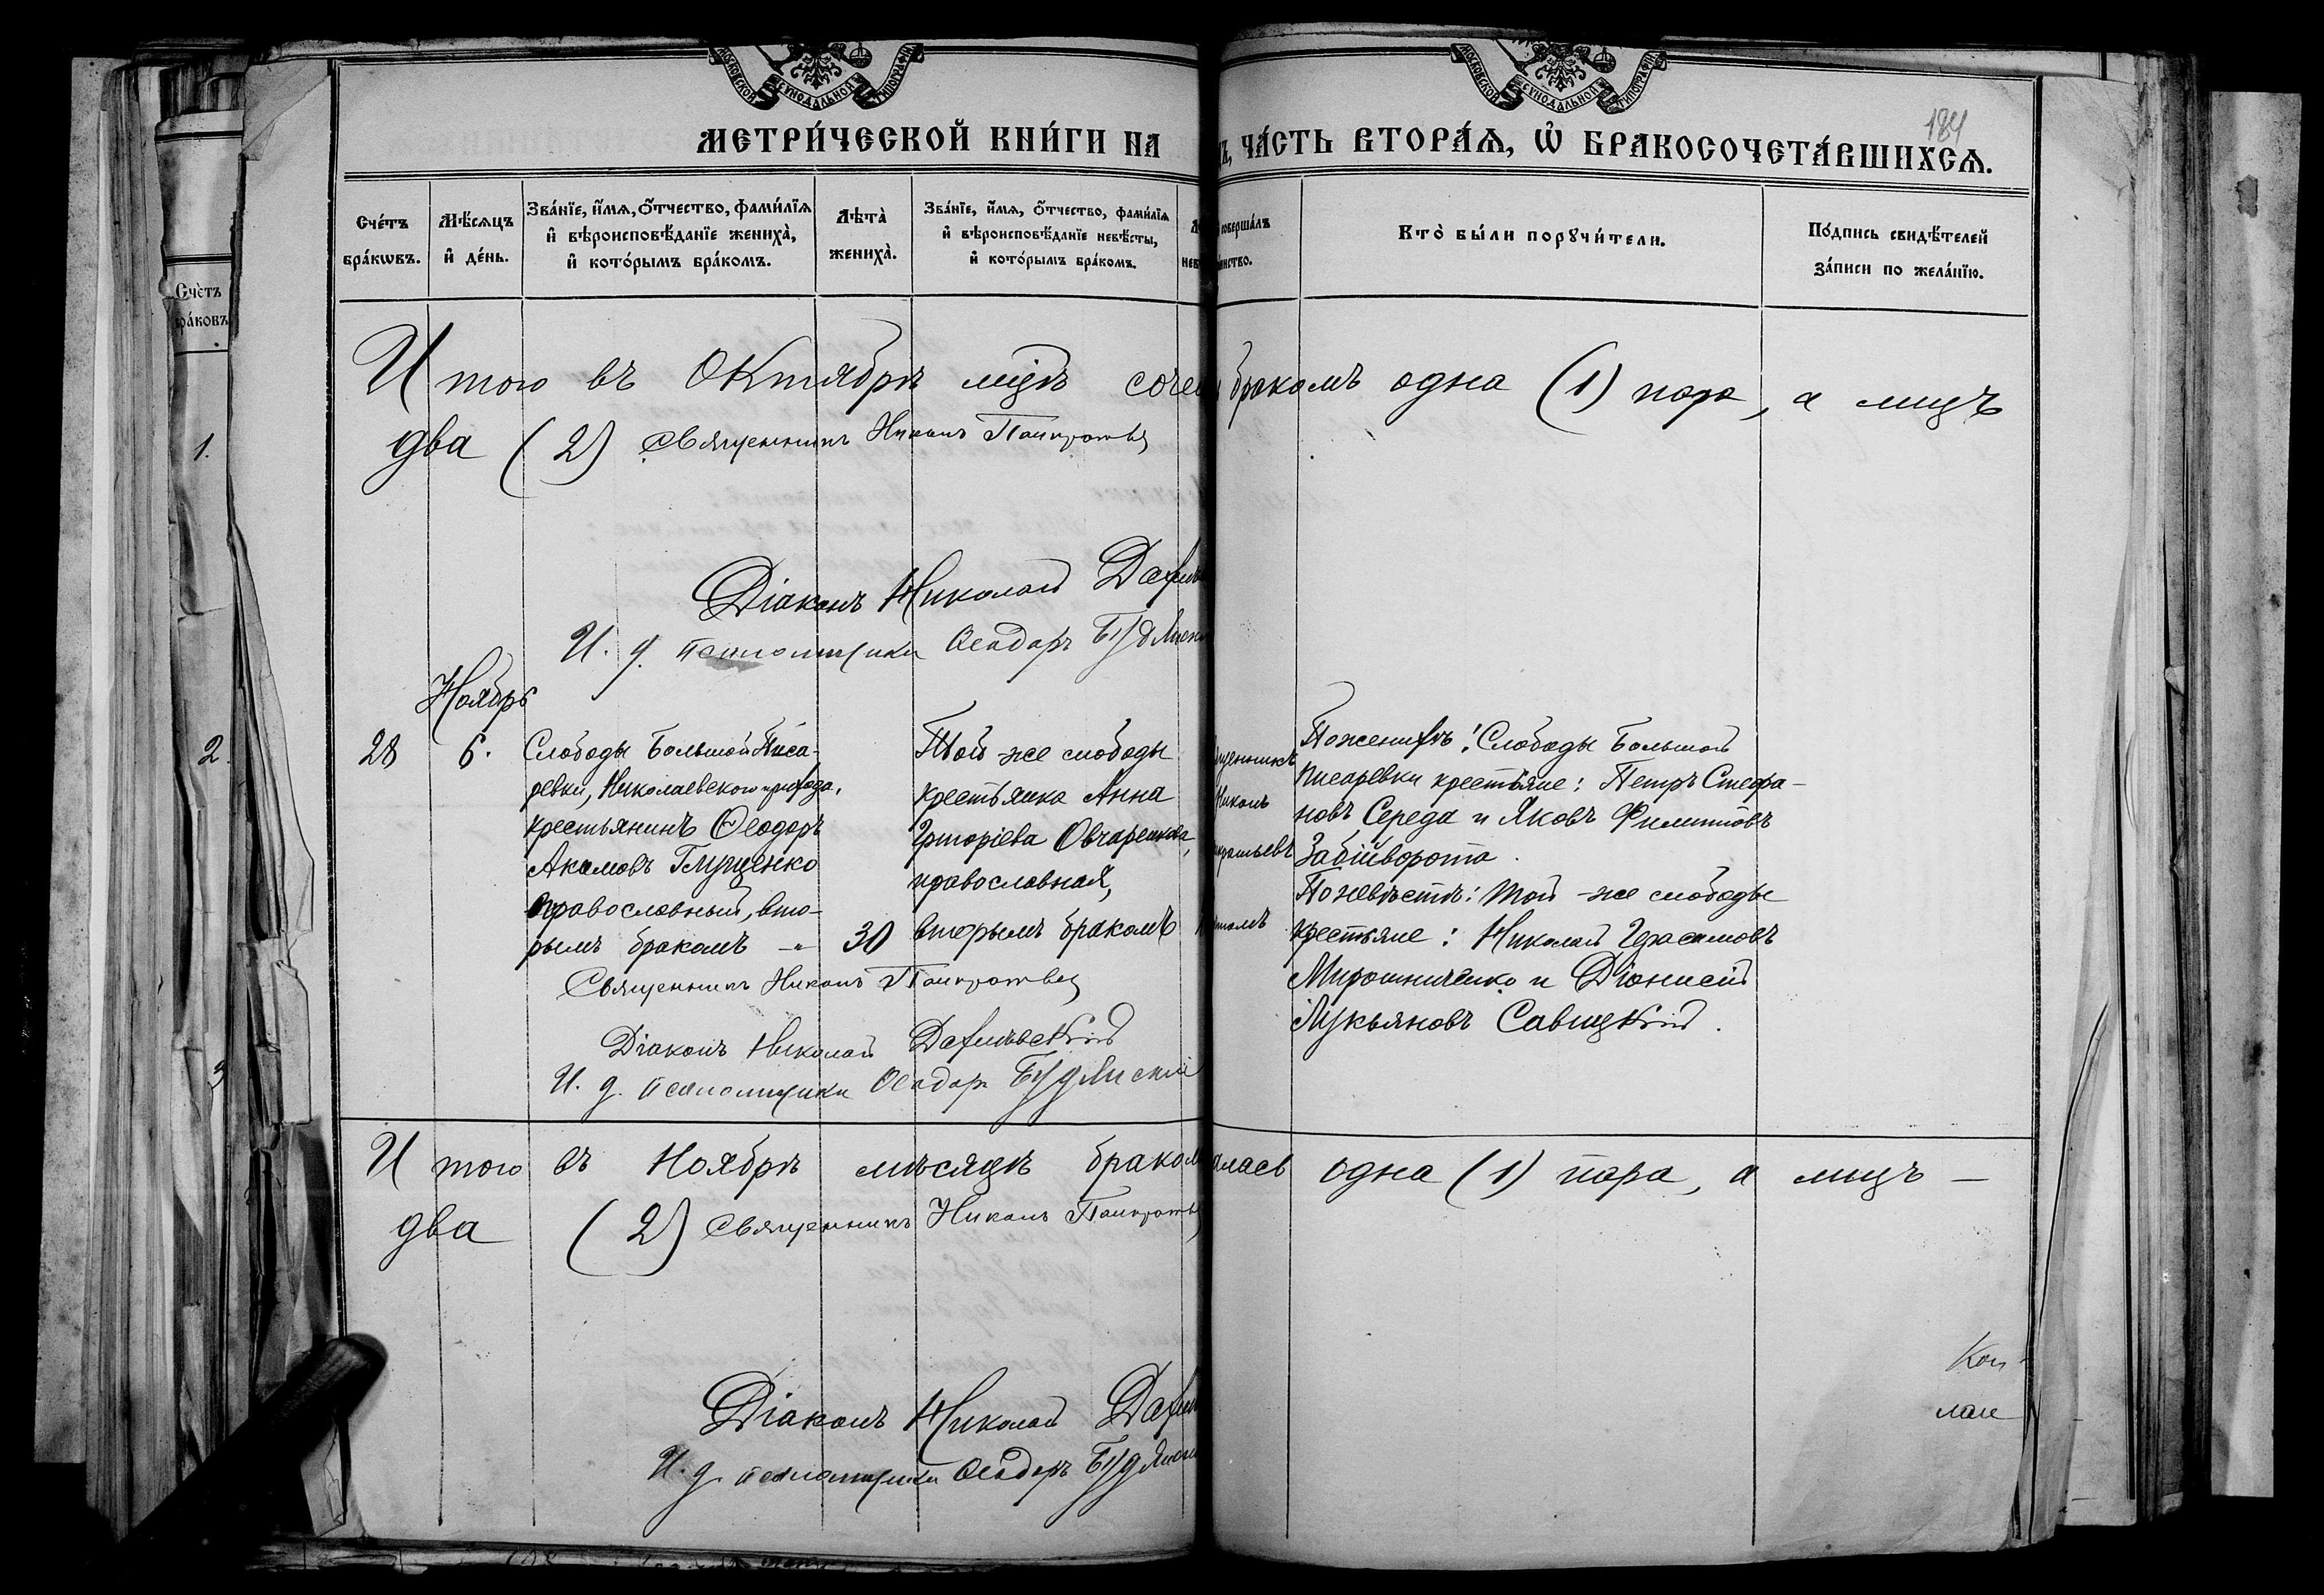 МОСКОВСКОЙ СѴНОДАЛЬНОЙ ТИПОГРАФІИ
МОСКОВСКОЙ СѴНОДАЛЬНОЙ ТИПОГРАФІИ
184
МЕТРИ́ЧЕСКОЙ КНИ́ГИ НА
Ъ, ЧА́СТЬ ВТОРА́Ѧ, Ѽ БРАКОСОЧЕТА́ВШИХСѦ.
Сче́тъ
бра́кѡвъ.
Мѣ́сѧцъ
и҆ де́нь.
Зва́нїе, и҆́мѧ, ѻ҆́тчество, фами́лїѧ
и҆ вѣроисповѣ́данїе жениха̀,
и҆ кото́рымъ бра́комъ.
Лѣта̀
жениха̀.
Зва́нїе, и҆́мѧ, ѻ҆́тчество, фами́лїѧ
и҆ вѣроисповѣ́данїе невѣ́сты,
и҆ кото́рымъ бра́комъ.
соверша́лъ
Кто̀ бы́ли порꙋчи́тели.
По́дпись свидѣ́телей
за́писи по жела́нїю.
Счѐтъ
бра́ковъ
1.
2.
3
Итого въ Октябрѣ мцѣ соче
бракомъ одна (1) пара, а лицъ
два (2) Священникъ Никонъ Панкратьев
Діаконъ Николай
И. д. псаломщика Ѳеодоръ
Ноябрь
28
6.
Слободы Большой Писа-
ревки, Николаевскаго прихода,
крестьянинъ Ѳеодоръ
Акимовъ Глущенко
православный, вто-
рымъ бракомъ
30
Той-же слободы
крестьянка Анна
Григоріева Овчаренкова,
православная,
вторымъ бракомъ
щенникъ
Никонъ
кратьевъ
По женихѣ: Слободы Большой
Писаревки крестьяне: Петръ Стефа-
новъ Середа и Яковъ Филипповъ
Забійворота.
По невѣстѣ: той-же слободы
крестьяне: Николай Герасимовъ
Мирошниченко и Діонисій
Лукьяновъ Савицкій.
Священникъ Никонъ Панкратьев
Діаконъ Николай
И. д. псаломщика Ѳеодоръ Будянскій
Итого въ Ноябрѣ мѣсяцѣ браком
алась одна (1) пара, а лицъ —
два (2) Священникъ Никонъ Панкратьев
Діаконъ Николай
И. д. псаломщика Ѳеодоръ